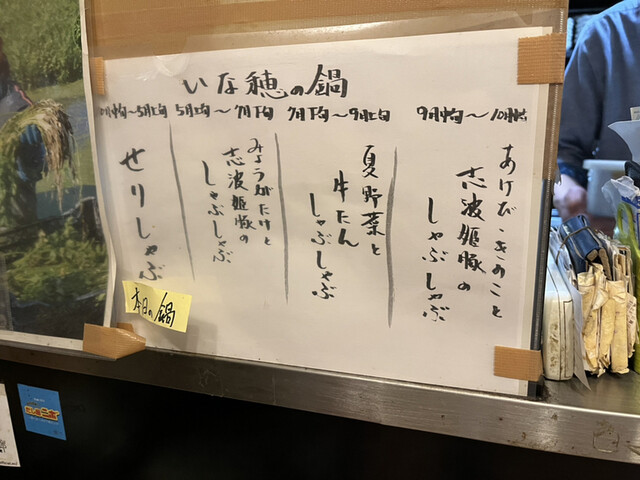 いな穂の鍋
9月中旬〜10月
あけび・きのこと
志波姫豚の
しゃぶしゃぶ
7月下旬〜9月上旬
夏野菜と
牛たん
しゃぶしゃぶ
5月上旬〜7月下旬
みょうがたけと
志波姫豚の
しゃぶしゃぶ
月中旬〜5月上旬
せりしゃぶ
本日の鍋